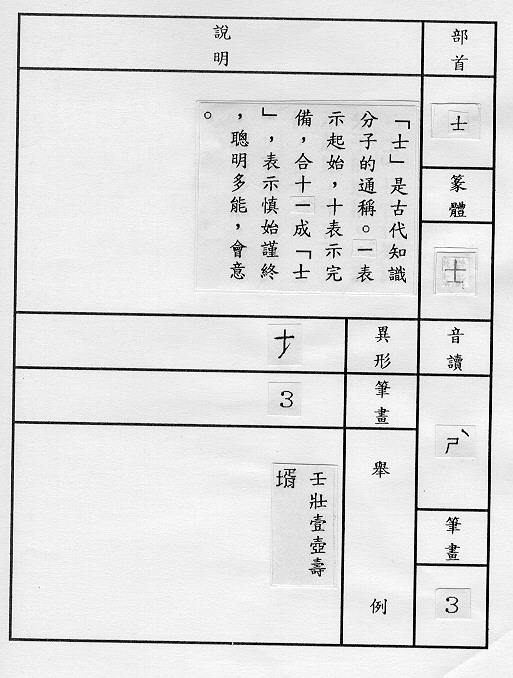 部首
士
篆體
士
音讀
ㄕˋ
筆畫
3
說明
「士」是古代知識
分子的通稱。一表
示起始，十表示完
備，合十一成「士
」，表示慎始謹終
，聰明多能，會意
。
異形
筆畫
3
舉例
壬壯壹壺壽
壻